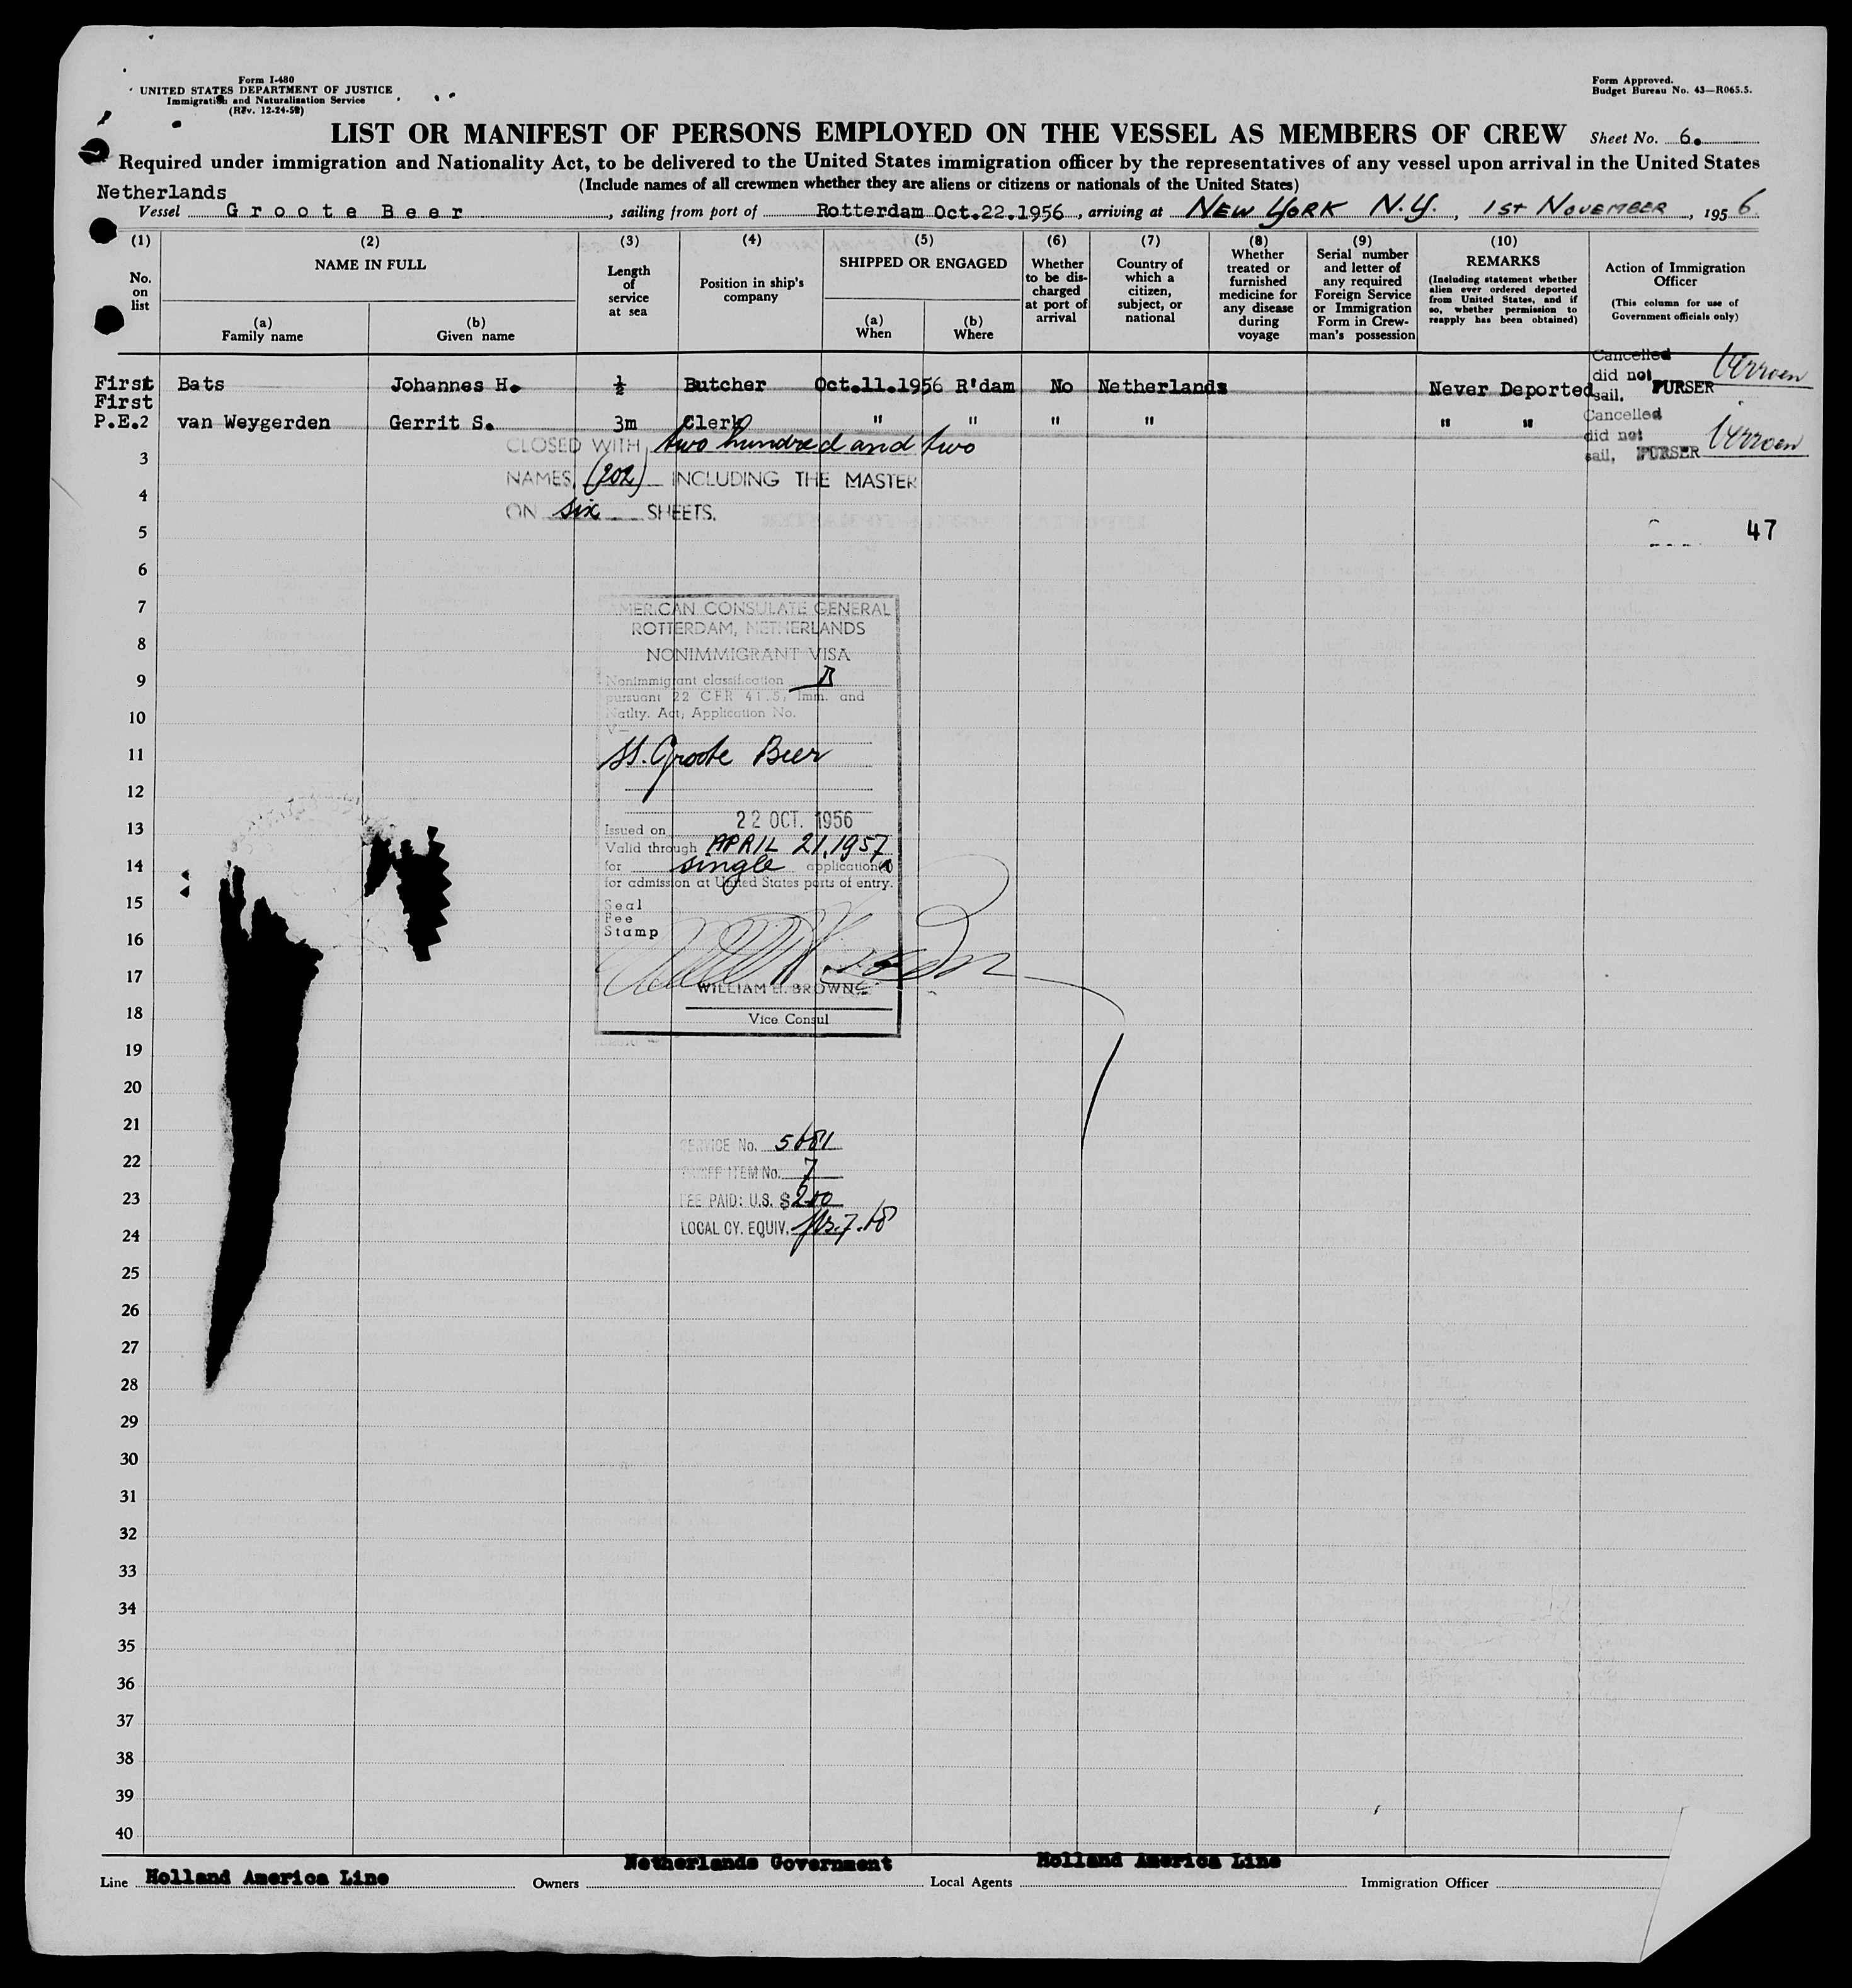 Form I-480
UNITED STATES DEPARTMENT OF JUSTICE
Immigration and Naturalization Service
(Rev. 12-24-52)
Form Approved.
Budget Bureau No. 43—R065.5.
LIST OR MANIFEST OF PERSONS EMPLOYED ON THE VESSEL AS MEMBERS OF CREW Sheet No. 6.
Required under immigration and Nationality Act, to be delivered to the United States immigration officer by the representatives of any vessel upon arrival in the United States
(Include names of all crewmen whether they are aliens or citizens or nationals of the United States)
Netherlands
Vessel Groote Beer, sailing from port of Rotterdam Oct.22.1956, arriving at NEW YORK N.Y., 1ST NOVEMBER, 1956.
(1) No. on list
(2) NAME IN FULL
(a) Family name
(b) Given name
(3) Length of service at sea
(4) Position in ship's company
(5) SHIPPED OR ENGAGED
(a) When
(b) Where
(6) Whether to be discharged at port of arrival
(7) Country of which a citizen, subject, or national
(8) Whether treated or furnished medicine for any disease during voyage
(9) Serial number and letter of any required Foreign Service or Immigration Form in Crewman's possession
(10) REMARKS
(Including statement whether alien ever ordered deported from United States, and if so, whether permission to reapply has been obtained)
Action of Immigration Officer
(This column for use of Government officials only)
First Bats Johannes H. ½ Butcher Oct.11.1956 R'dam No Netherlands Never Deported
Cancelled did not sail. PURSER
First
P.E.2 van Weygerden Gerrit S. 3m Clerk " " " " " "
Cancelled did not sail. PURSER
CLOSED WITH two hundred and two
NAMES (202) INCLUDING THE MASTER
ON six SHEETS.
47
3
4
5
6
7
8
9
10
11
12
13
14
15
16
17
18
19
20
21
22
23
24
25
26
27
28
29
30
31
32
33
34
35
36
37
38
39
40
AMERICAN CONSULATE GENERAL
ROTTERDAM, NETHERLANDS
NONIMMIGRANT VISA
Nonimmigrant classification D
pursuant 22 CFR 41.5, Imm. and
Natlty. Act, Application No.
V—
ss. Groote Beer
Issued on 22 OCT. 1956
Valid through APRIL 21, 1957
for single application(s)
for admission at United States ports of entry.
Seal
Fee
Stamp
WILLIAM H. BROWN
Vice Consul
SERVICE No.
TARIFF ITEM No. 7
FEE PAID: U.S. $
LOCAL CY. EQUIV.
Line Holland America Line Owners Netherlands Government Local Agents Holland America Line Immigration Officer